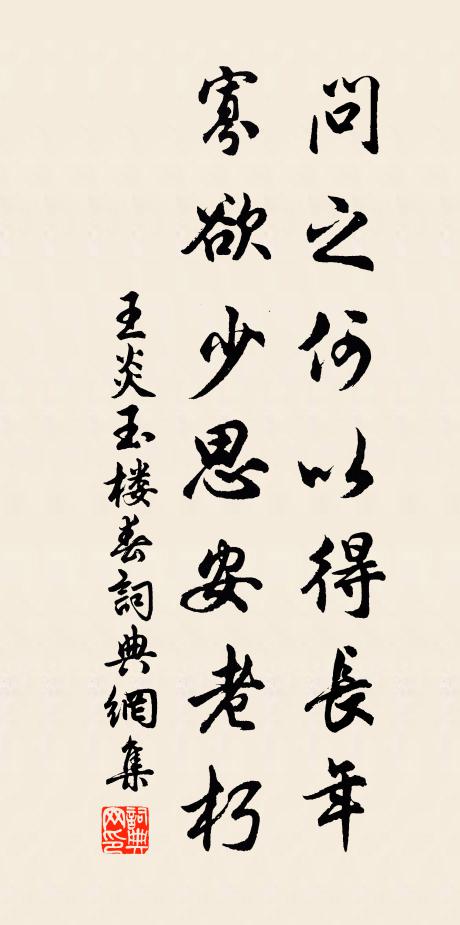 問之何以得長年
寡欲少思安老朽
王炎玉楼春詞典網集
詞典網印